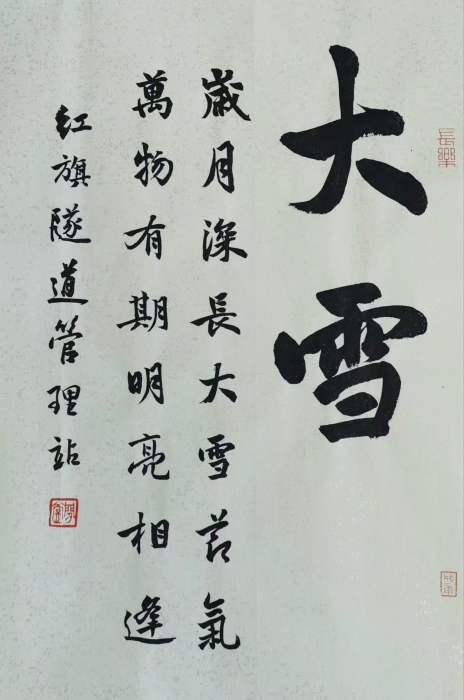 大雪
歲月深長大雪節氣
萬物有期明亮相逢
紅旗隧道管理站
長樂